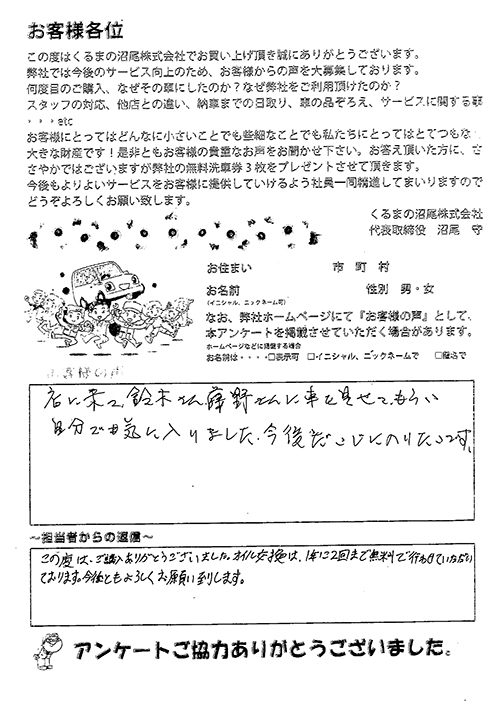 お客様各位
この度はくるまの沼尾株式会社でお買い上げ頂き誠にありがとうございます。
弊社では今後のサービス向上のため、お客様からの声を大募集しております。
何度目のご購入、なぜその車にしたのか？なぜ弊社をご利用頂けたのか？
スタッフの対応、他店との違い、納車までの日取り、車の品ぞろえ、サービスに関する事
・・・etc
お客様にとってはどんなに小さいことでも些細なことでも私たちにとってはとてつもな
大きな財産です！是非ともお客様の貴重なお声をお聞かせ下さい。お答え頂いた方に、さ
さやかではございますが弊社の無料洗車券３枚をプレゼントさせて頂きます。
今後もよりよいサービスをお客様に提供していけるよう社員一同精進してまいりますので
どうぞよろしくお願い致します。
くるまの沼尾株式会社
代表取締役　沼尾　守
お住まい　市　町　村
お名前　性別　男・女
（イニシャル、ニックネーム可）
なお、弊社ホームページにて『お客様の声』として、
本アンケートを掲載させていただく場合があります。
ホームページなどに掲載する場合
お名前は・・・・□表示可　□イニシャル、ニックネームで　□匿名で
お客様の声
店に来て、鈴木さん、野さんに車を見せてもらい
自分でも気に入りました。今後だいじにのりたいです。
～担当者からの返信～
この度は、ご購入ありがとうございました。オイル交換は、1年に2回まで無料で行わせていただい
ております。今後ともよろしくお願い致します。
アンケートご協力ありがとうございました。